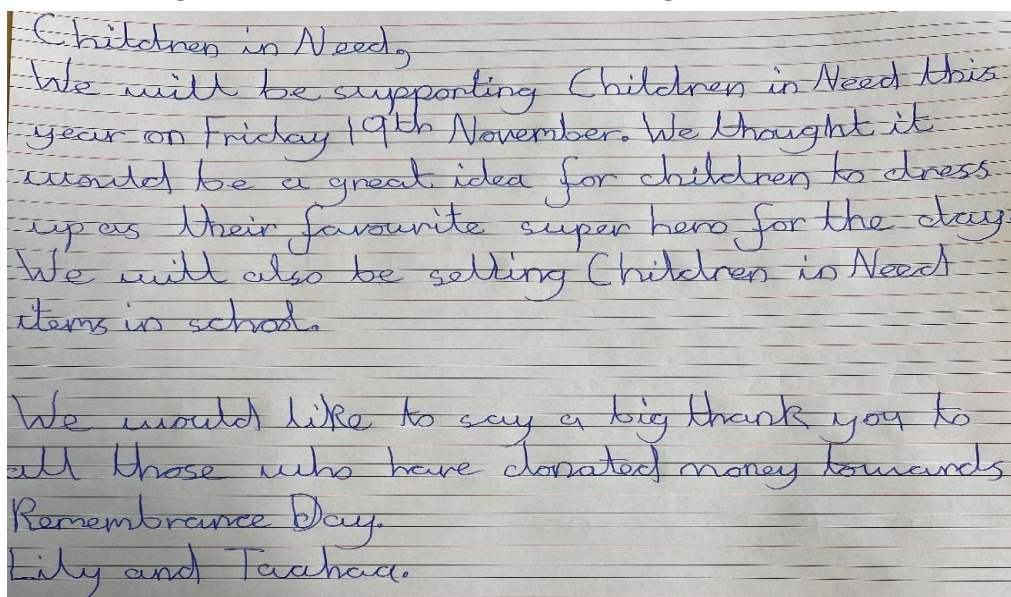 Children in Need,
We will be supporting Children in Need this
year on Friday 19th November. We thought it
would be a great idea for children to dress
up as their favourite super hero for the day.
We will also be selling Children in Need
items in school.
We would like to say a big thank you to
all those who have donated money towards
Remembrance Day.
Lily and Taahaa.